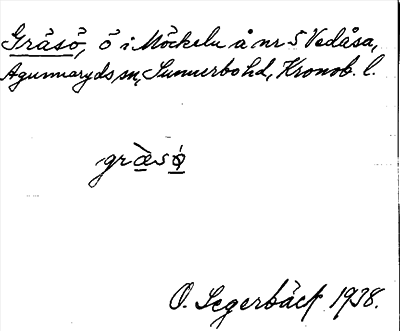 Gräsö, ö i Möckeln å nr 5 Vedåsa,
Agunnaryds sn, Sunnerbo hd, Kronob. l.
gra̱sø̱
O. Segerbäck 1938.